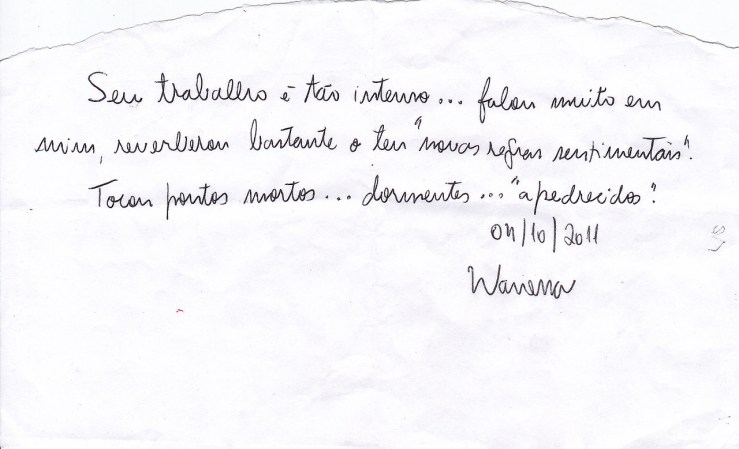 Seu trabalho é tão intenso... falou muito em
mim, reverberou bastante o teu "novas regras sentimentais".
Tocou pontos mortos... dormentes... "apedrecidos".
04/10/2011
Wanessa